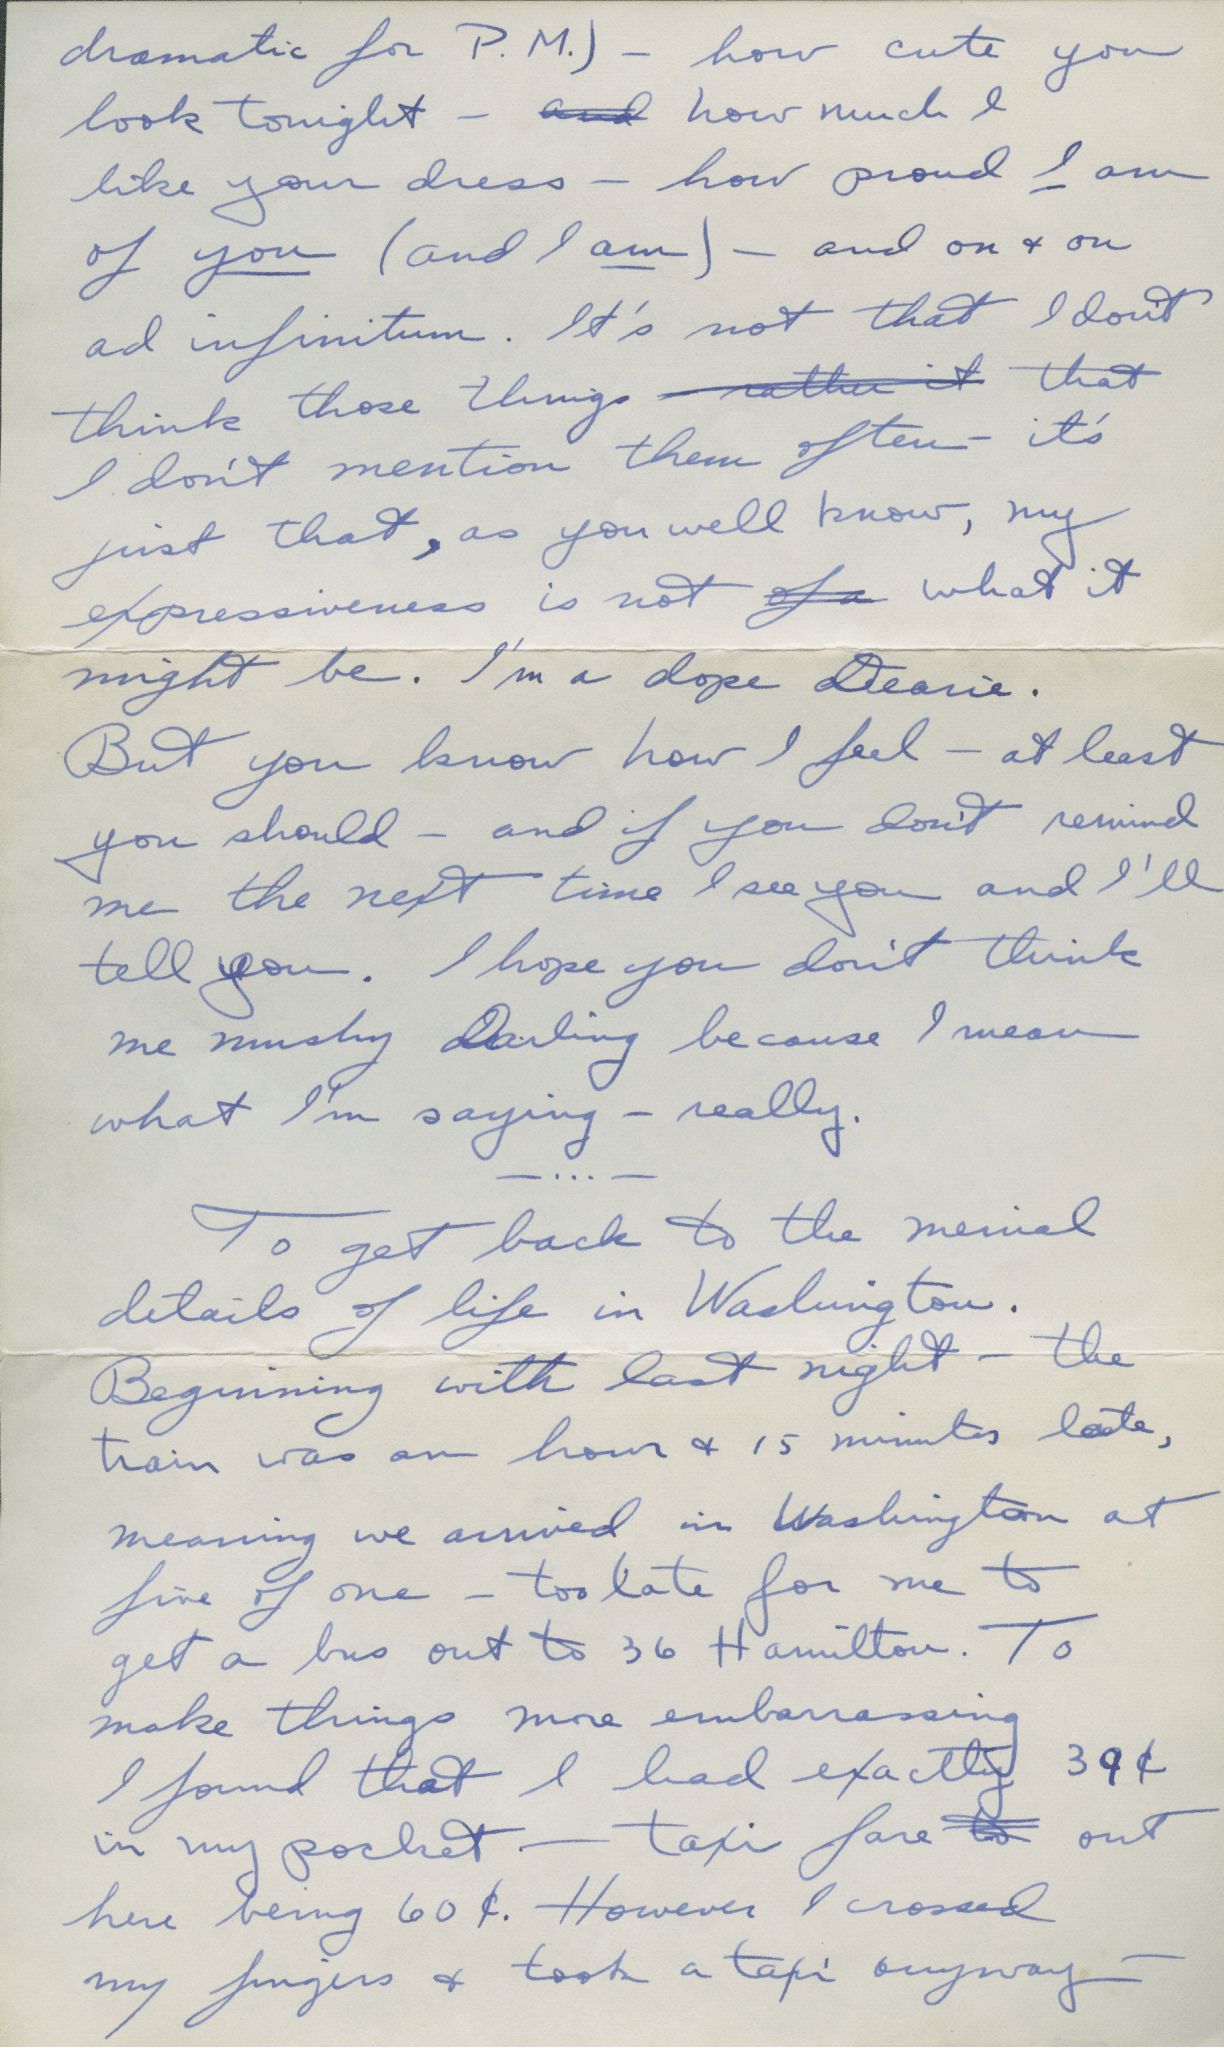 dramatic for P.M.) — how cute you
look tonight — and how much I
like your dress — how proud I am
of you (and I am) — and on & on
ad infinitum. It's not that I don't
think those things — rather it that
I don't mention them often — it's
just that, as you well know, my
expressiveness is not of a what it
might be. I'm a dope Dearie.
But you know how I feel — at least
you should — and if you don't remind
me the next time I see you and I'll
tell you. I hope you don't think
me mushy Darling because I mean
what I'm saying — really.
— ... —
To get back to the menial
details of life in Washington.
Beginning with last night — the
train was an hour & 15 minutes late,
meaning we arrived in Washington at
five of one — too late for me to
get a bus out to 36 Hamilton. To
make things more embarrassing
I found that I had exactly 39¢
in my pocket — taxi fare to out
here being 60¢. However I crossed
my fingers & took a taxi anyway —